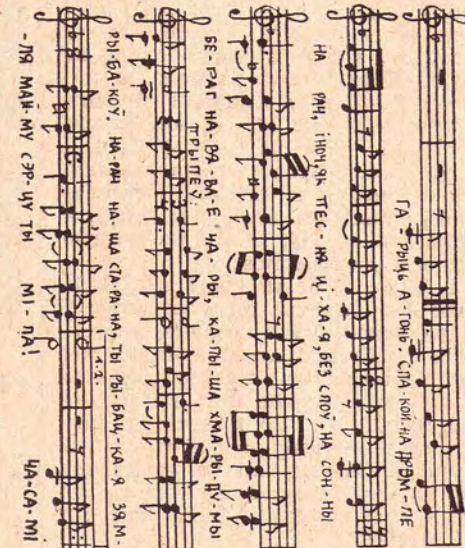 ГА - РЫЦЬ А - ГОНЬ. СПА - КОЙ. НА ДРЭМ - ЛЕ
НА РАЧ, ІНОЧ, ЯК ПЕС - НЯ ЦІ - ХА - Я, БЕЗ СЛОЎ, НА СОН - НЫ
БЕ - РАГ НА - ВЯ - ВА - Е ЧА - РЫ, КА - ЛЫ - ША ХМА - РЫ - ДУ - МЫ
ПРЫПЕЎ:
РЫ - БА - КОЎ. НА - РАЧ НА - ША СТА - РА - НА, ТЫ РЫ - БАЦ - КА - Я ЗЯМ -
1.2.
- ЛЯ МАЙ - МУ СЭР - ЦУ ТЫ МІ - ЛА! ЧА - СА - МІ